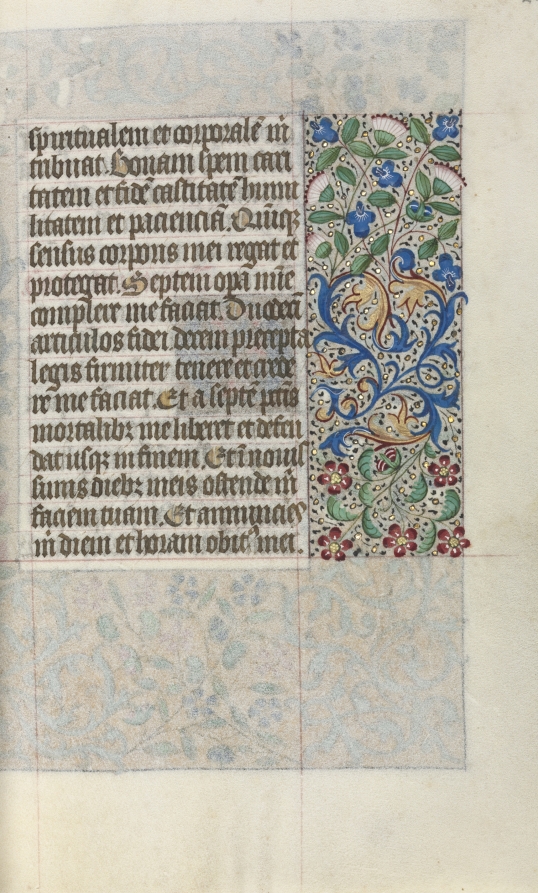 spiritualem et corporalē m̄
tribuat. Bonam spem cari
tatem et fidē castitatē humi
litatem et pacienciā. Quīqꝫ
sensus corporis mei regat et
protegat. Septem opa mīe
complere me faciat. Duodecī
articulos fidei decem precepta
legis firmiter tenere et crede
re me faciat. Et a septē pctīs
mortalibꝫ me liberet et defen
dat usqꝫ in finem. Et ī nouis
simis diebꝫ meis ostende m̄
faciem tuam. Et annuncies
m̄ diem et horam obitꝰ mei.